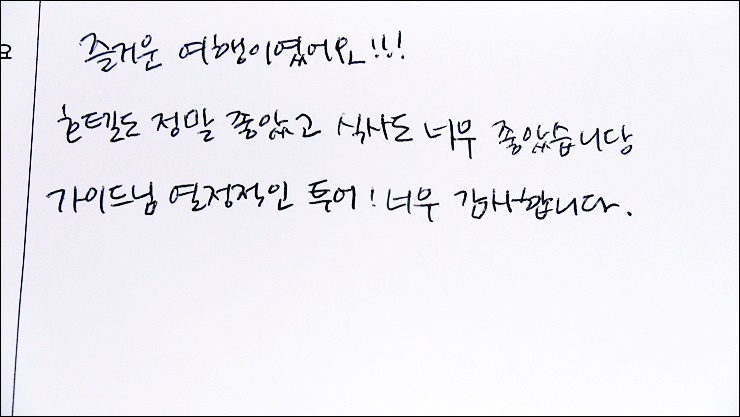 요
즐거운 여행이였어요!!!
호텔도 정말 좋았고 식사도 너무 좋았습니당
가이드님 열정적인 투어! 너무 감사합니다.